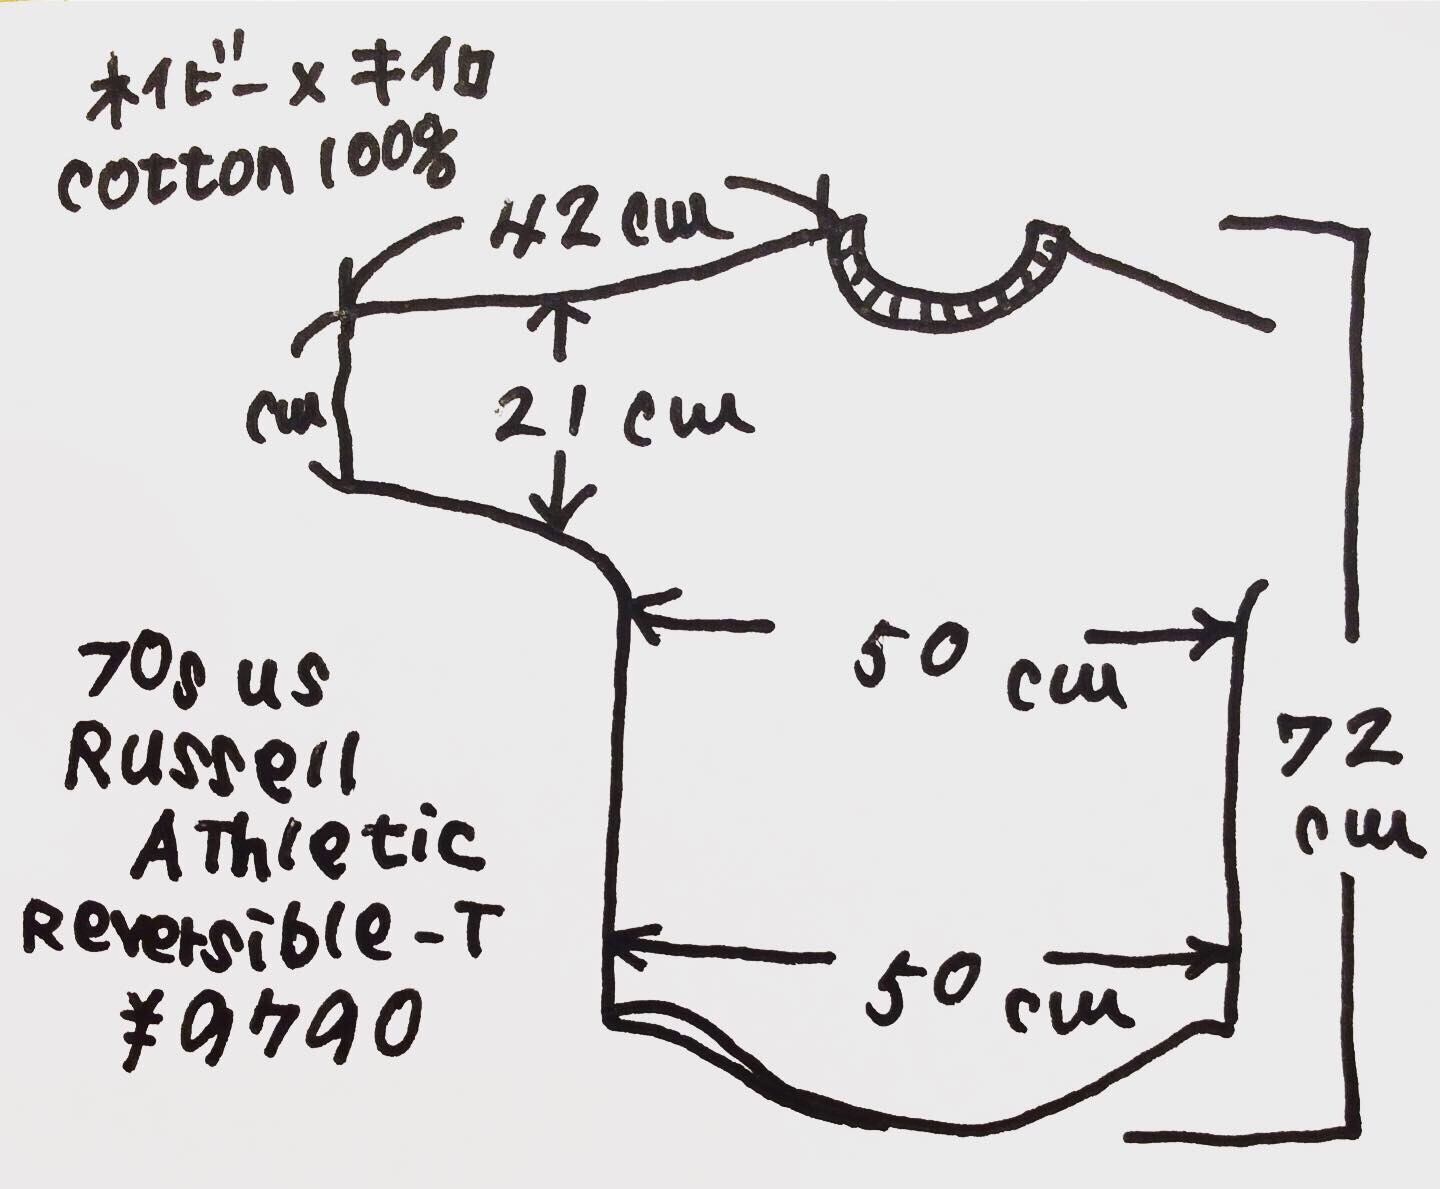 ネイビー×キイロ
cotton 100%
42cm
cm
21cm
50cm
72
cm
70s us
Russell
Athletic
Reversible-T
¥9790
50cm